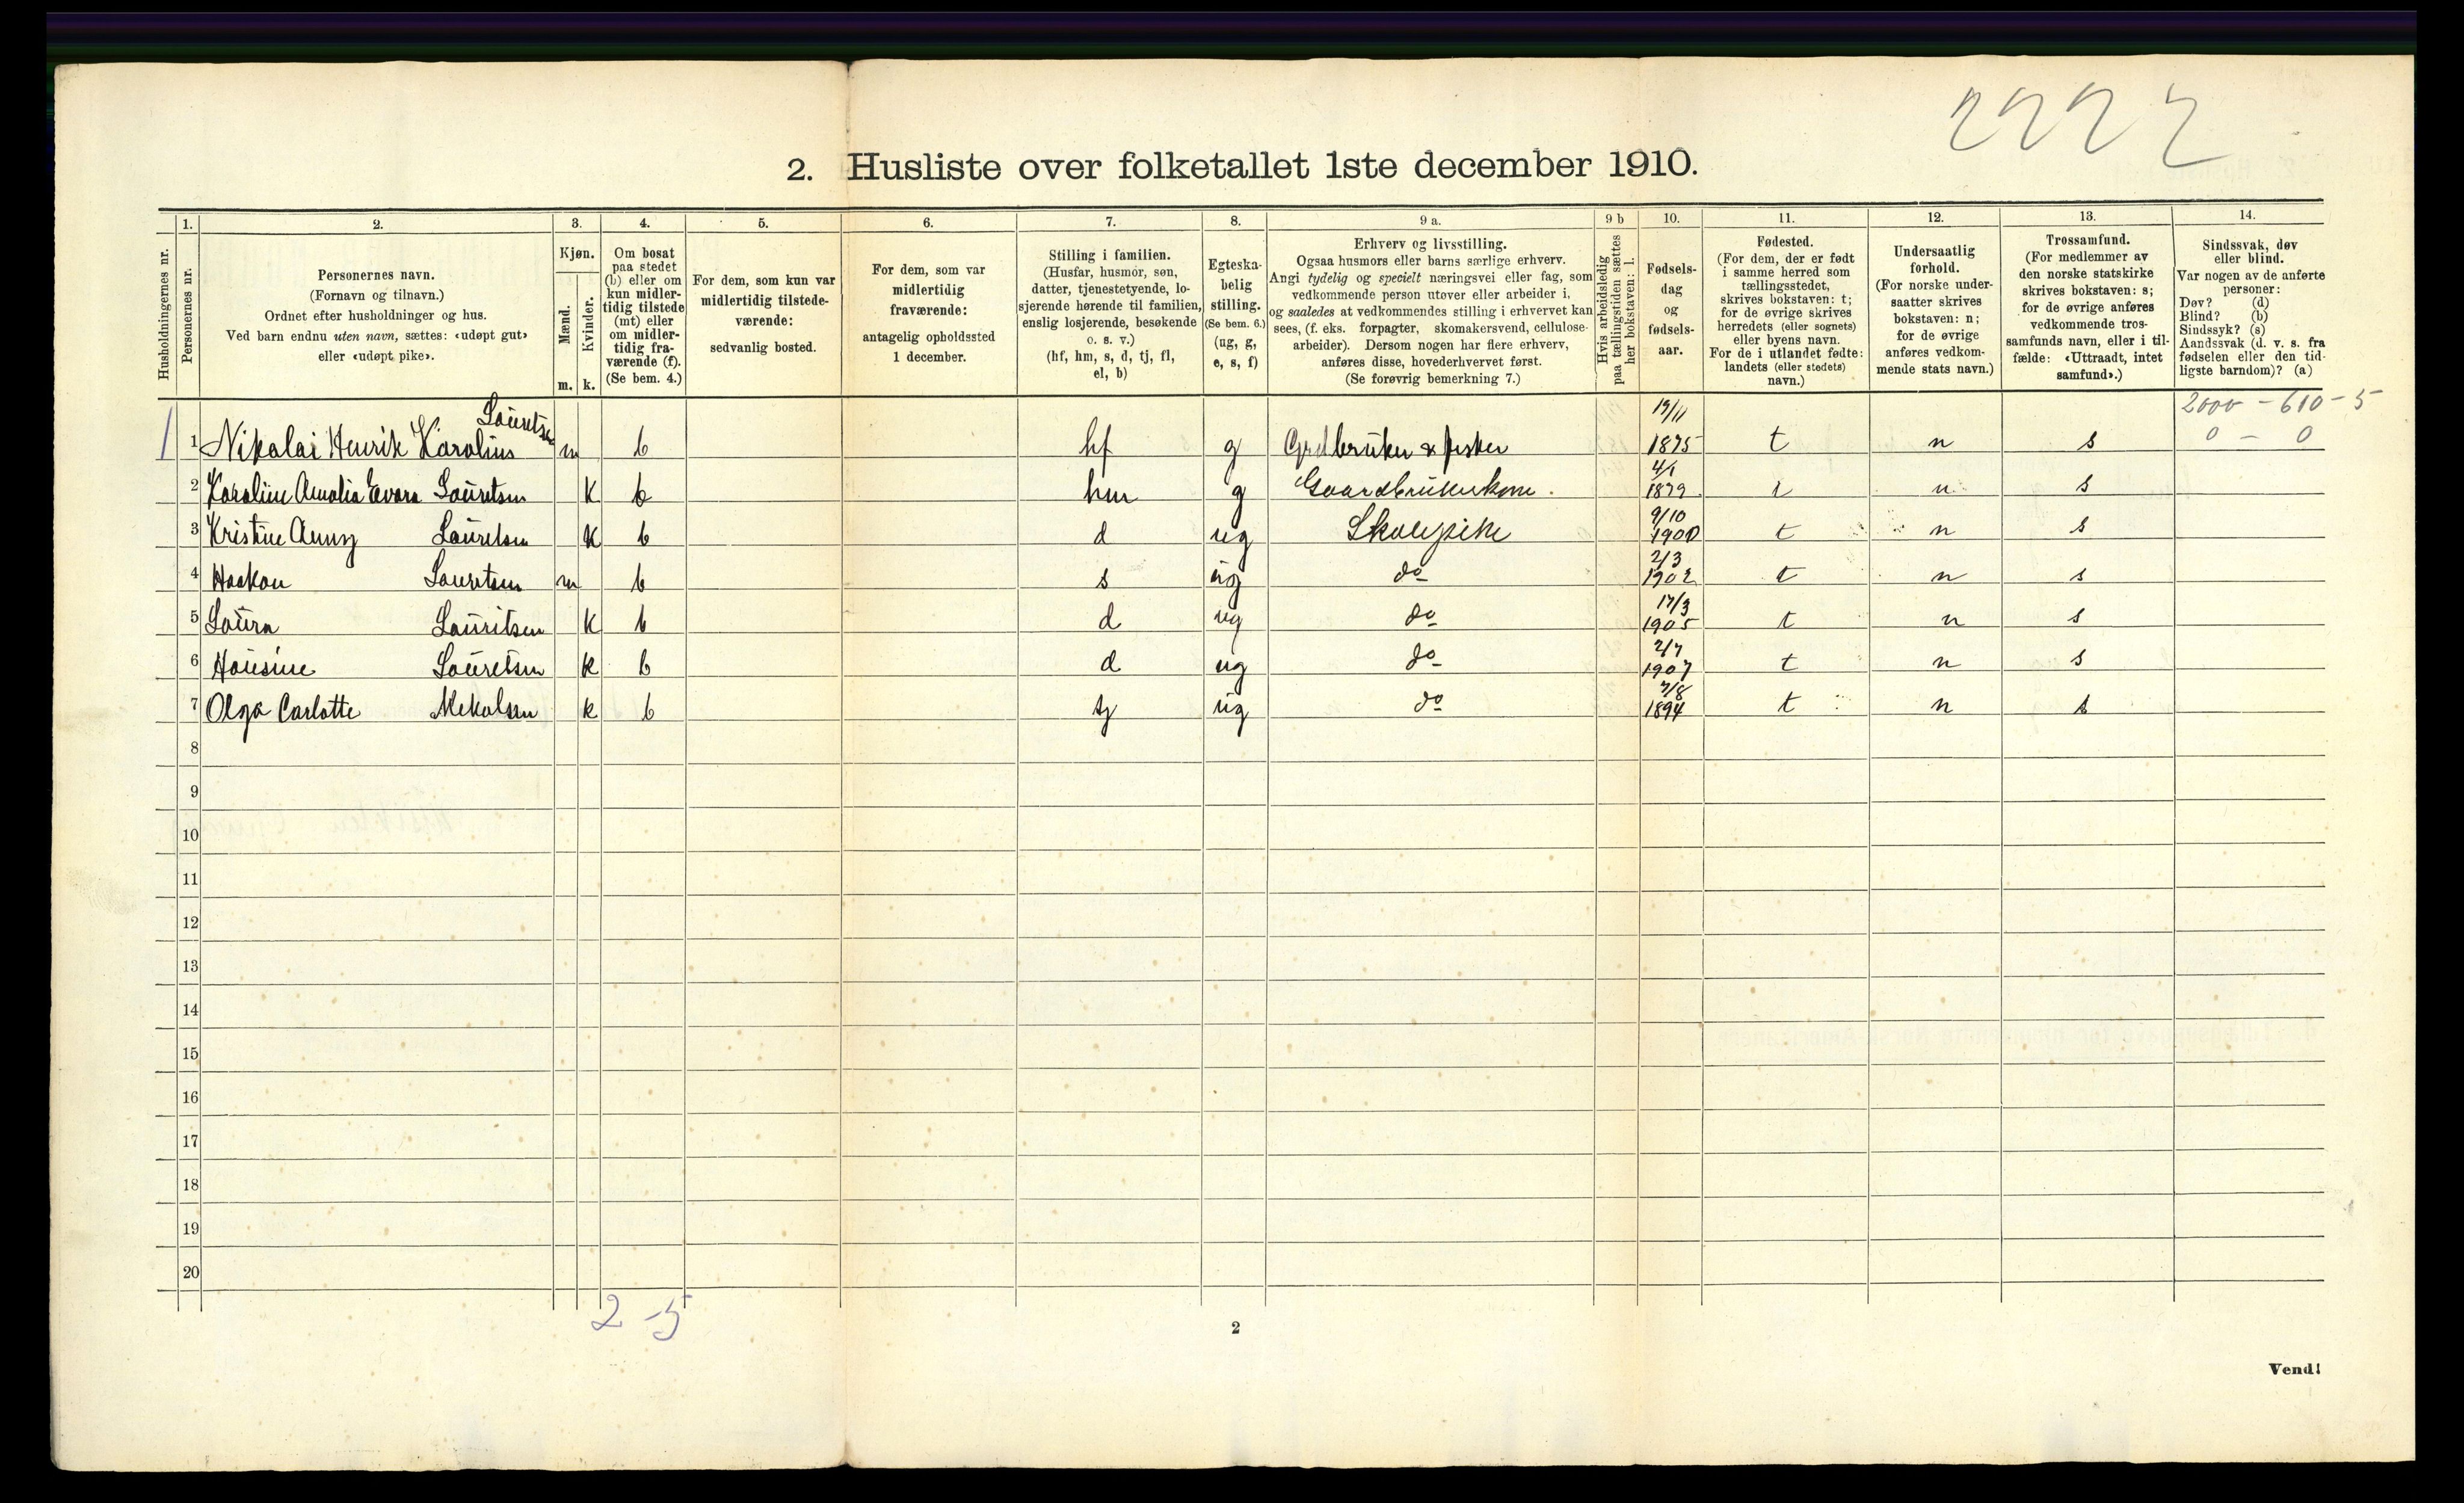 2. Husliste over folketallet 1ste december 1910.
1. 2. 3. 4. 5. 6. 7. 8. 9 a. 9 b 10. 11. 12. 13. 14.
Husholdningernes nr.
Personernes nr.
Personernes navn.
(Fornavn og tilnavn.)
Ordnet efter husholdninger og hus.
Ved barn endnu uten navn, sættes: «udøpt gut»
eller «udøpt pike».
Kjøn.
Mænd.
Kvinder.
m. k.
Om bosat
paa stedet
(b) eller om
kun midler-
tidig tilstede
(mt) eller
om midler-
tidig fra-
værende (f).
(Se bem. 4.)
For dem, som kun var
midlertidig tilstede-
værende:
sedvanlig bosted.
For dem, som var
midlertidig
fraværende:
antagelig opholdssted
1 december.
Stilling i familien.
(Husfar, husmor, søn,
datter, tjenestetyende, lo-
sjerende hørende til familien,
enslig losjerende, besøkende
o. s. v.)
(hf, hm, s, d, tj, fl,
el, b)
Egteska-
belig
stilling.
(Se bem. 6.)
(ug, g,
e, s, f)
Erhverv og livsstilling.
Ogsaa husmors eller barns særlige erhverv.
Angi tydelig og specielt næringsvei eller fag, som
vedkommende person utøver eller arbeider i,
og saaledes at vedkommendes stilling i erhvervet kan
sees, (f. eks. forpagter, skomakersvend, cellulose-
arbeider). Dersom nogen har flere erhverv,
anføres disse, hovederhvervet først.
(Se forøvrig bemerkning 7.)
Hvis arbeidsledig
paa tællingstiden sættes
her bokstaven: l.
Fødsels-
dag
og
fødsels-
aar.
Fødested.
(For dem, der er født
i samme herred som
tællingsstedet,
skrives bokstaven: t;
for de øvrige skrives
herredets (eller sognets)
eller byens navn.
For de i utlandet fødte:
landets (eller stedets)
navn.)
Undersaatlig
forhold.
(For norske under-
saatter skrives
bokstaven: n;
for de øvrige
anføres vedkom-
mende stats navn.)
Trossamfund.
(For medlemmer av
den norske statskirke
skrives bokstaven: s;
for de øvrige anføres
vedkommende tros-
samfunds navn, eller i til-
fælde: «Uttraadt, intet
samfund».)
Sindssvak, døv
eller blind.
Var nogen av de anførte
personer:
Døv? (d)
Blind? (b)
Sindssyk? (s)
Aandssvak (d. v. s. fra
fødselen eller den tid-
ligste barndom)? (a)
2000 - 610 - 5
0 - 0
1 1 Nikolai Henrik Karolius Lauretsen m b hf g Grdbruker & fisker 19/11 1875 t n s
2 Karoline Amalia Evara Lauretsen k b hm g Gaardbrukerkone. 4/1 1879 t n s
3 Kristine Anny Lauretsen k b d ug Skolepike 9/10 1900 t n s
4 Haakon Lauretsen m b s ug do 2/3 1902 t n s
5 Laura Lauritsen k b d ug do 17/3 1905 t n s
6 Hansine Lauretsen k b d ug do 2/7 1907 t n s
7 Olga Carlotte Mekalsen k b tj ug do 7/8 1894 t n s
8
9
10
11
12
13
14
15
16
17
18
19
20
2 - 5
2
Vend!